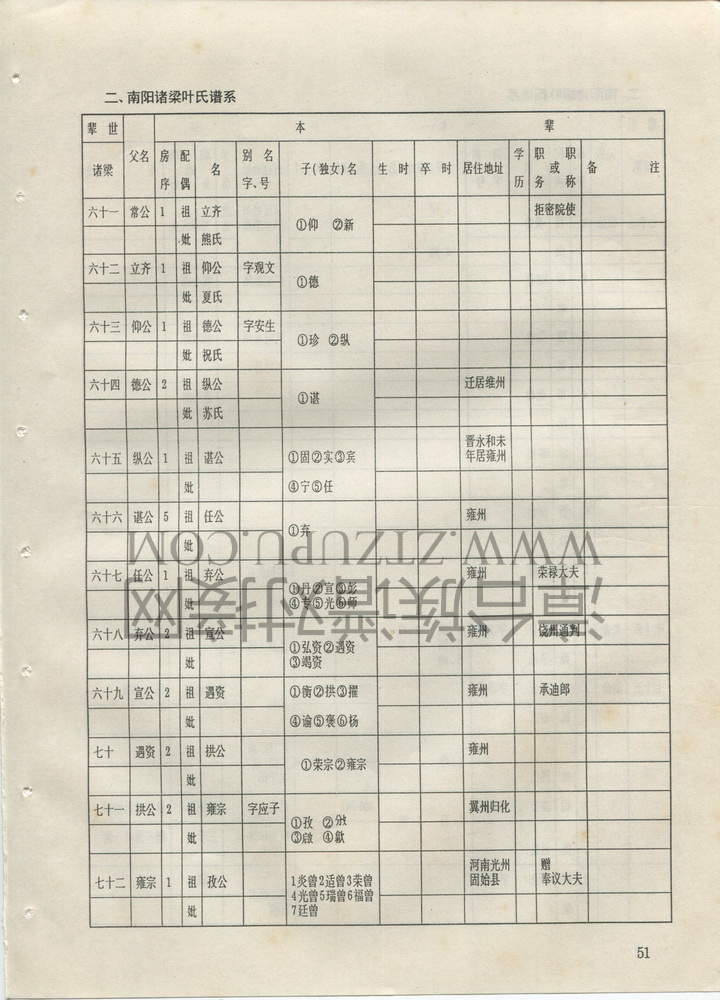 二、南阳诸梁叶氏谱系
辈世 父名 房序 配偶 本辈
诸梁 名 别名字、号 子(独女)名 生时 卒时 居住地址 学历 职务或职称 备注
六十一 常公 1 祖 立齐 ①仰 ②新 拒密院使
妣 熊氏
六十二 立齐 1 祖 仰公 字观文 ①德
妣 夏氏
六十三 仰公 1 祖 德公 字安生 ①珍 ②纵
妣 祝氏
六十四 德公 2 祖 纵公 ①谌 迁居维州
妣 苏氏
六十五 纵公 1 祖 谌公 ①固②实③宾 晋永和未年居雍州
妣 ④宁⑤任
六十六 谌公 5 祖 任公 ①弃 雍州
妣
六十七 任公 1 祖 弃公 ①丹②宣③彭 雍州 荣禄大夫
妣 ④专⑤光⑥师
六十八 弃公 2 祖 宣公 ①弘资②遇资 雍州 饶州通判
妣 ③竭资
六十九 宣公 2 祖 遇资 ①衡②拱③擢 雍州 承迪郎
妣 ④谕⑤褒⑥杨
七十 遇资 2 祖 拱公 ①荣宗②雍宗 雍州
妣
七十一 拱公 2 祖 雍宗 字应子 ①孜 ② 翼州归化
妣 ③啟 ④
七十二 雍宗 1 祖 孜公 1炎曾2适曾3荣曾 河南光州固始县 赠奉议大夫
妣 4光曾5瑞曾6福曾
7廷曾
WWW.ZTZUPU.COM
族谱对接网
51